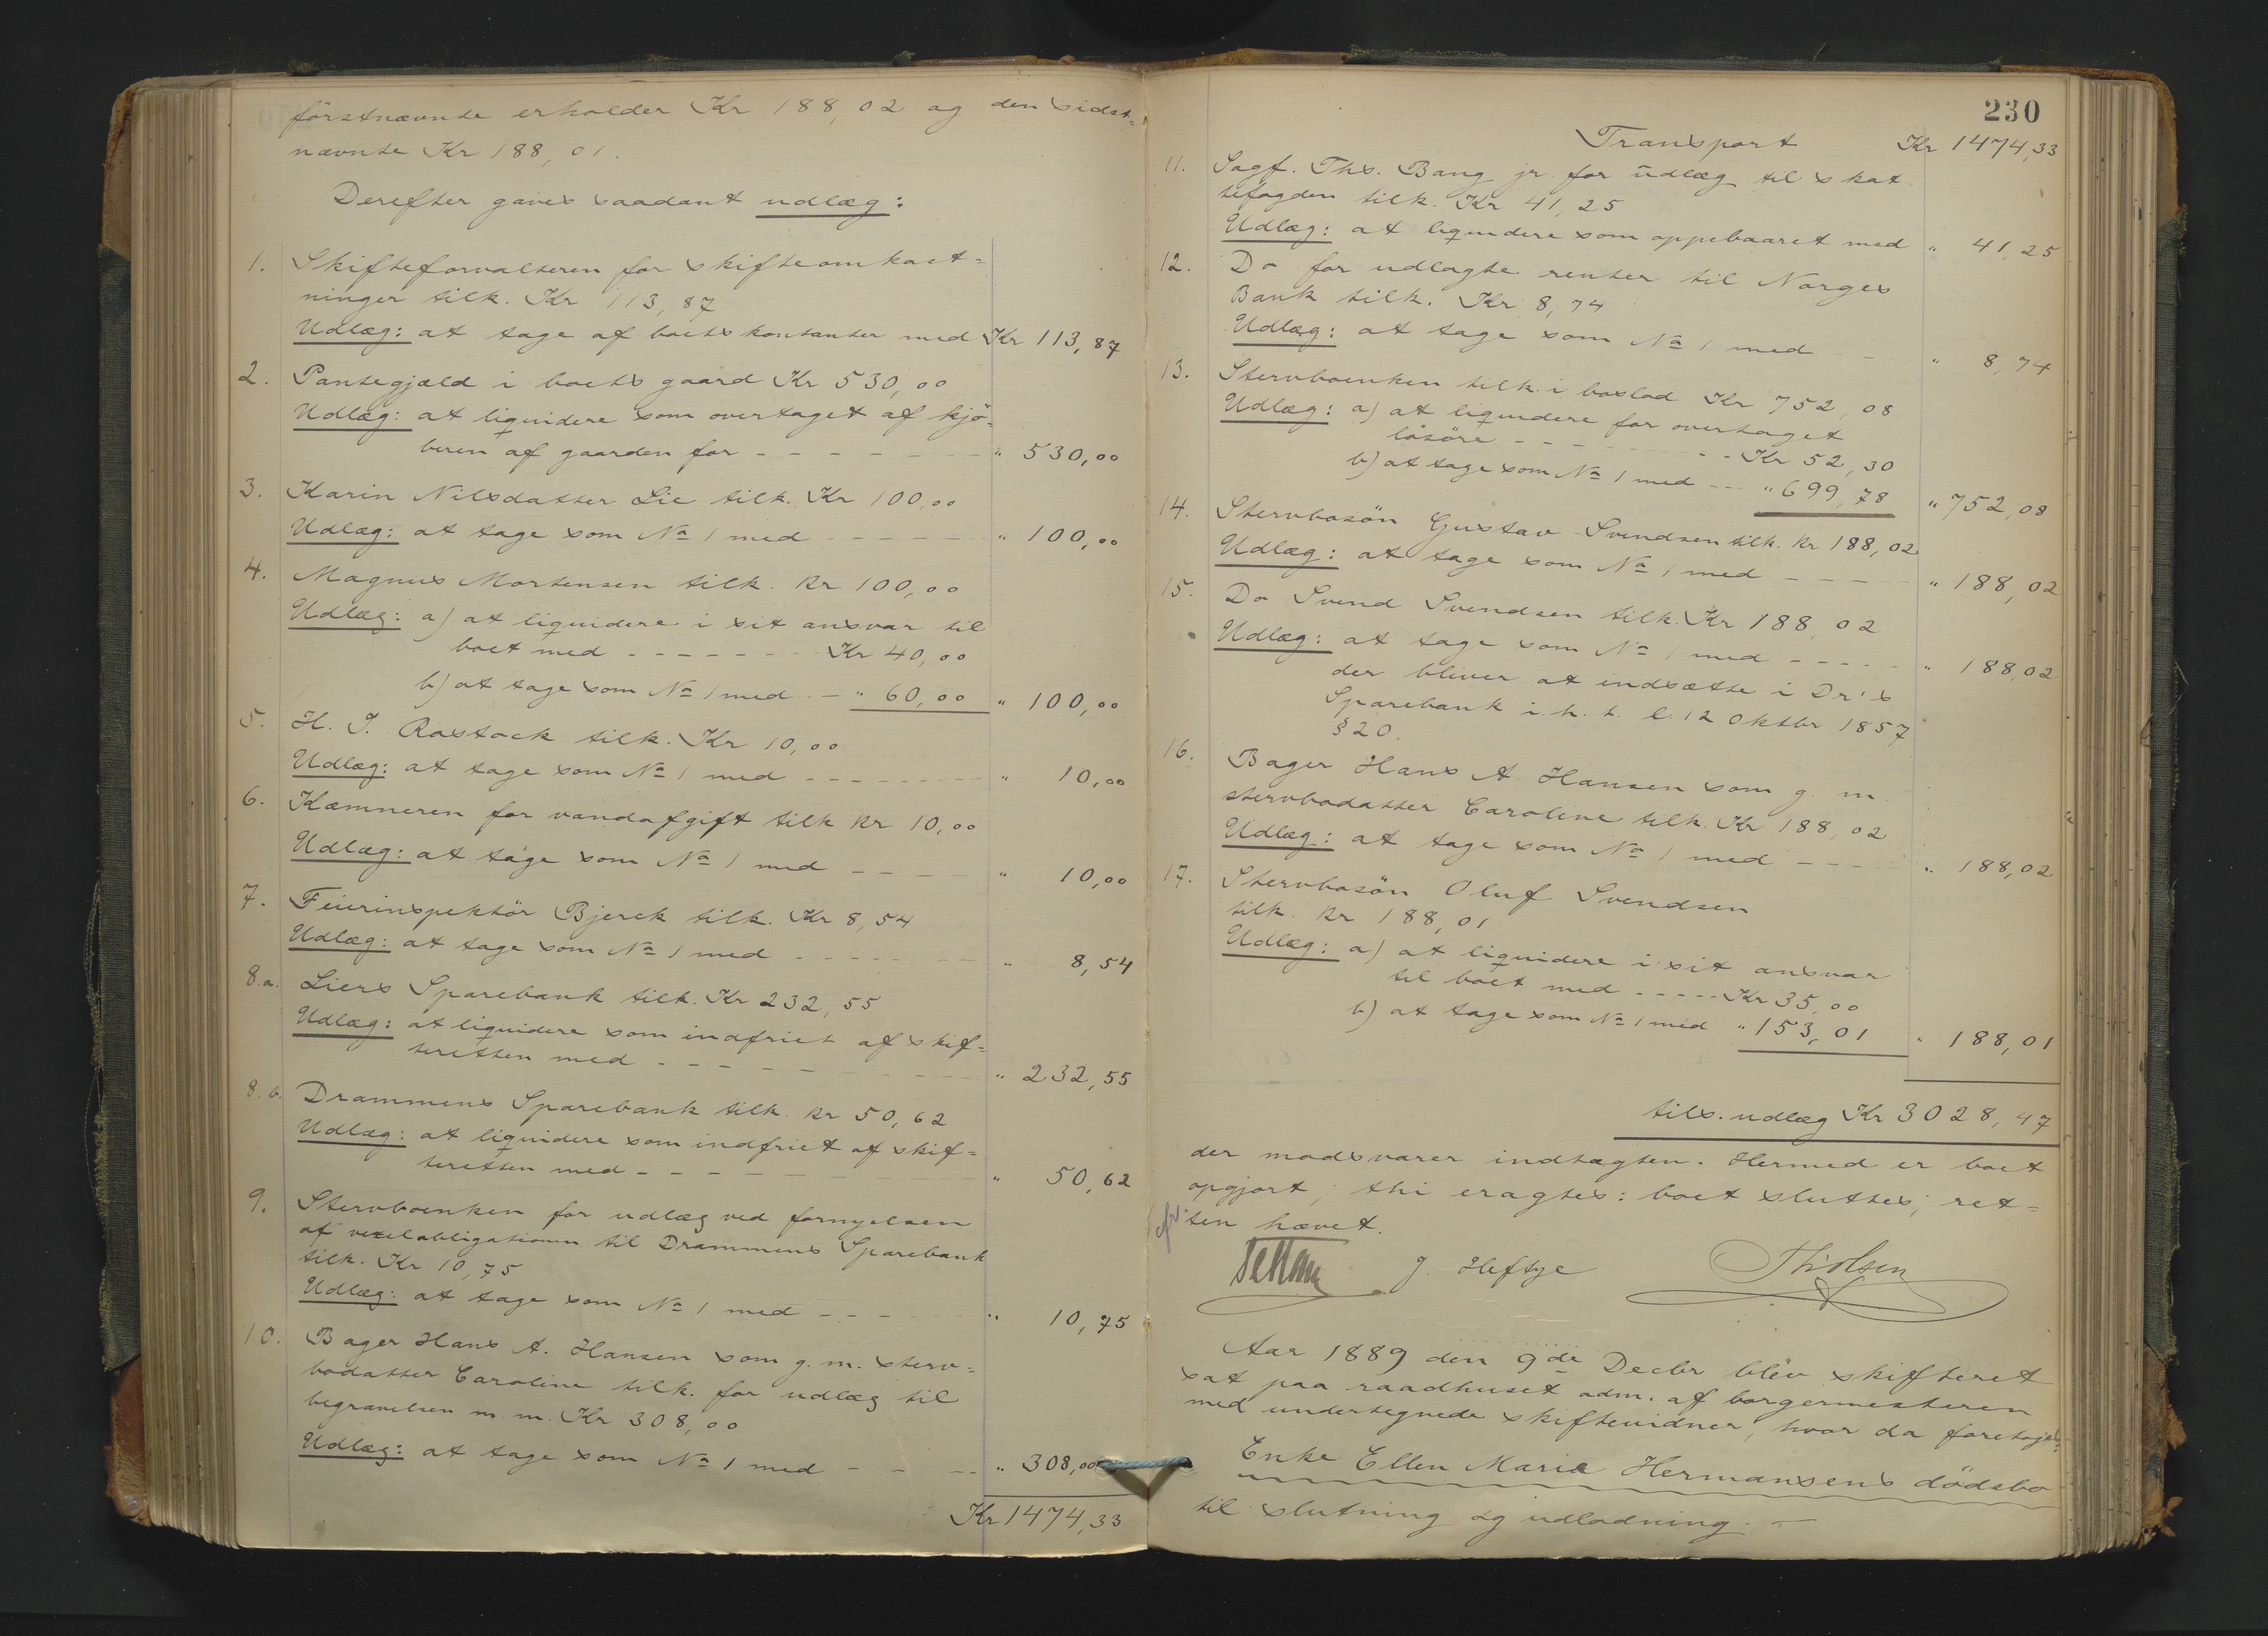 förstnævnte erholder Kr 188,02 og den sidst=
nævnte Kr 188,01.
Derefter gaves saadant udlæg:
1. Skifteforvalteren for skifteomkost=
ninger tilk. Kr 113,87
Udlæg: at tage af boets kontanter med Kr 113,87
2. Pantegjæld i boets gaard Kr 530,00
Udlæg: at liqvidere som overtaget af kjö=
beren af gaarden for - - - - - - - " 530,00
3. Karin Nilsdatter Lie tilk. Kr 100,00
Udlæg: at tage som No 1 med - - - - - " 100,00
4. Magnus Mortensen tilk. Kr 100,00
Udlæg: a) at liqvidere i sit ansvar til
boet med - - - - - - - Kr 40,00
b) at tage som No 1 med - " 60,00 " 100,00
5. H. J. Rostock tilk. Kr 10,00
Udlæg: at tage som No 1 med - - - - - - - " 10,00
6. Kæmneren for vandafgift tilk Kr 10,00
Udlæg: at tage som No 1 med - - - - " 10,00
7. Feierinspektör Bjerck tilk. Kr 8,54
Udlæg: at tage som No 1 med - - - - - - - " 8,54
8.a. Liers Sparebank tilk. Kr 232,55
Udlæg: at liqvidere som indfriet af skif=
teretten med - - - - - - - - " 232,55
8.b. Drammens Sparebank tilk. Kr 50,62
Udlæg: at liqvidere som indfriet af skif=
teretten med - - - - - - - - " 50,62
9. Stervboenken for udlæg ved fornyelsen
af vexelobligationen til Drammens Sparebank
tilk. Kr 10,75
Udlæg: at tage som No 1 med - - - " 10,75
10. Bager Hans A. Hansen som g. m. sterv=
bodatter Caroline tilk. for udlæg til
begravelsen m. m. Kr 308,00
Udlæg: at tage som No 1 med - - - " 308,00
Kr 1474,33
230
Transport Kr 1474,33
11. Sagf. Ths. Bang jr. for udlæg til skat
tefogden tilk. Kr 41,25
Udlæg: at liqvidere som oppebaaret med " 41,25
12. Do for udlagte renter til Norges
Bank tilk. Kr 8,74
Udlæg: at tage som No 1 med - - " 8,74
13. Stervboenken tilk. i boslod Kr 752,08
Udlæg: a) at liqvidere for overtaget
lösöre - - - - - - - Kr 52,30
b) at tage som No 1 med - - - " 699,78 " 752,08
14. Stervbosön Gustav Svendsen tilk. Kr 188,02
Udlæg: at tage som No 1 med - - - - " 188,02
15. Do Svend Svendsen tilk. Kr 188,02
Udlæg: at tage som No 1 med - - - - - " 188,02
der bliver at indsætte i Dr's
Sparebank i. h. t. l. 12 Oktbr 1857
§ 20.
16. Bager Hans A. Hansen som g. m.
stervbodatter Caroline tilk. Kr 188,02
Udlæg: at tage som No 1 med - - - " 188,02
17. Stervbosön Oluf Svendsen
tilk. Kr 188,01
Udlæg: a) at liqvidere i sit ansvar
til boet med - - - - - Kr 35,00
b) at tage som No 1 med " 153,01 " 188,01
tils. udlæg Kr 3028,47
der modsvarer indtægten. Hermed er boet
opgjort, thi eragtes: boet sluttes; ret=
ten hævet.
J. Heftye Th Olsen
Aar 1889 den 9de Decbr blev skifteret
sat paa raadhuset adm. af borgermesteren
med undertegnede skiftevidner, hvor da foretoges:
Enke Ellen Marie Hermansens dödsbo
til slutning og udlodning. -